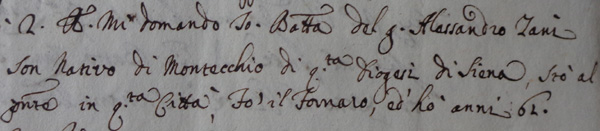 2. R. Mi domando Io. Batta del q. Alessandro Zani
son Nativo di Montecchio di q.ta Diogesi di Siena, stò al
pnte in q.ta Città, Fò il Fornaro, ed hò anni 61.